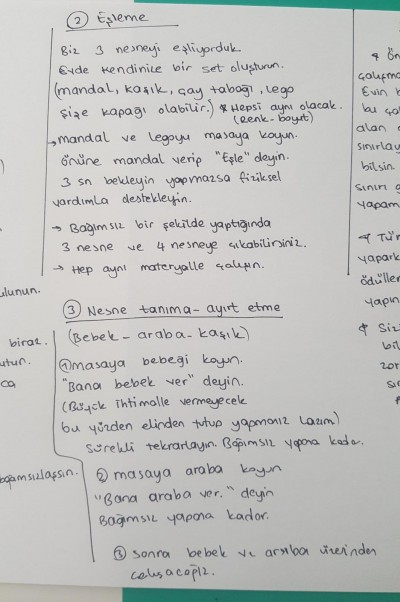 ② Eşleme
Biz 3 nesneyi eşliyorduk.
Evde kendinize bir set oluşturun.
(mandal, kaşık, çay tabağı, lego
şişe kapağı olabilir.) * Hepsi aynı olacak.
(Renk-boyut)
→ mandal ve legoyu masaya koyun.
önüne mandal verip "Eşle" deyin.
3 sn bekleyin yapmazsa fiziksel
yardımla destekleyin.
→ Bağımsız bir şekilde yaptığında
3 nesne ve 4 nesneye çıkabilirsiniz.
→ Hep aynı materyalle çalışın.
③ Nesne tanıma - ayırt etme
(Bebek - araba - kaşık)
① masaya bebeği koyun.
"Bana bebek ver" deyin.
(Büyük ihtimalle vermeyecek
bu yüzden elinden tutup yapmanız lazım)
sürekli tekrarlayın. Bağımsız yapana kadar.
② masaya araba koyun
"Bana araba ver." deyin
Bağımsız yapana kadar.
③ sonra bebek ve araba üzerinden
çalışacağız.
ulunun.
biraz.
utun.
ca
bağımsızlaşsın.
çalışma
Evin b
bu
alan
sınırlay
bilsin
sınırı
yapam
* Tür
yapark
ödüller
yapın
* Siz
bil
zor